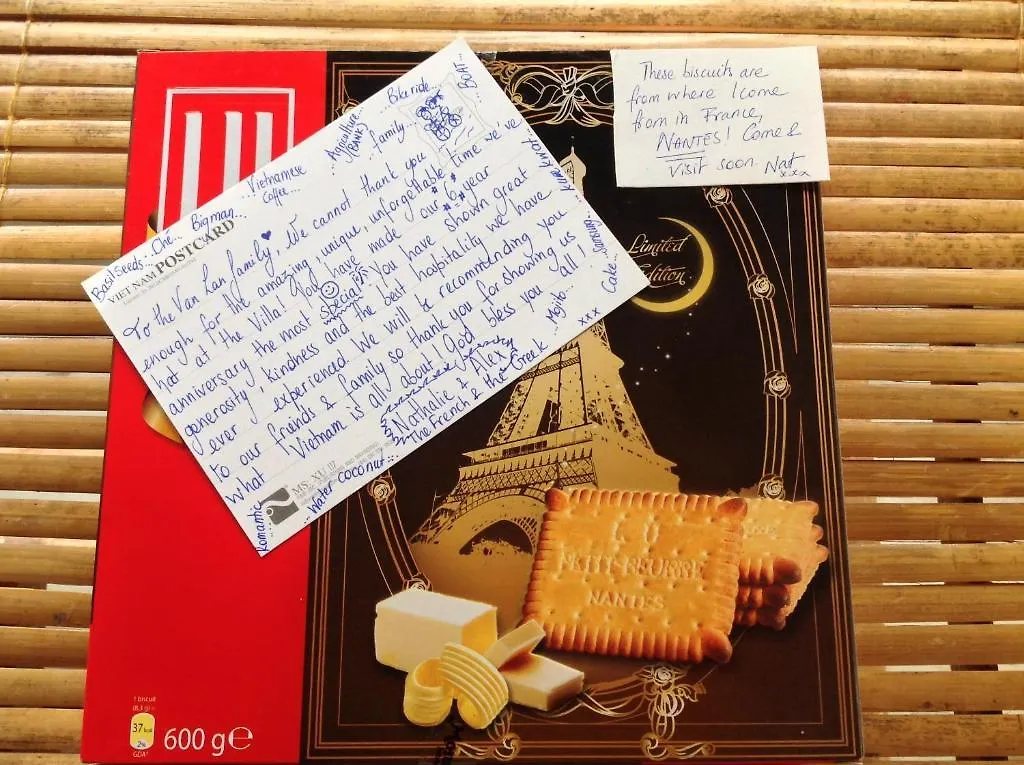 These biscuits are
from where I come
from in France,
NANTES! Come &
visit soon. Nat
xxx
BOAT...
Bike ride...
Agriculture
BANK
family...
Vietnamese
coffee...
Big man...
Che...
Basil Seeds...
VIET NAM POSTCARD
To the Van Lan family, We cannot thank you
enough for the amazing, unique, unforgettable time we've
had at the Villa! You have made our 6 year
anniversary the most special!! You have shown great
generosity, kindness and the best hospitality we have
ever experienced. We will be recommending you
to our friends & family so thank you for showing us
what Vietnam is all about. God bless you all!
Nathalie & Alex xxx
The French & the Greek
Kumkwat
Sunrise
Cake...
Mojito...
Water coconut...
Romantic
MS: XU 07
Limited
Edition
LU
PETIT-BEURRE
NANTES
1 biscuit
(8,3 g)=
37 kcal
2%
GDA*
600 g e